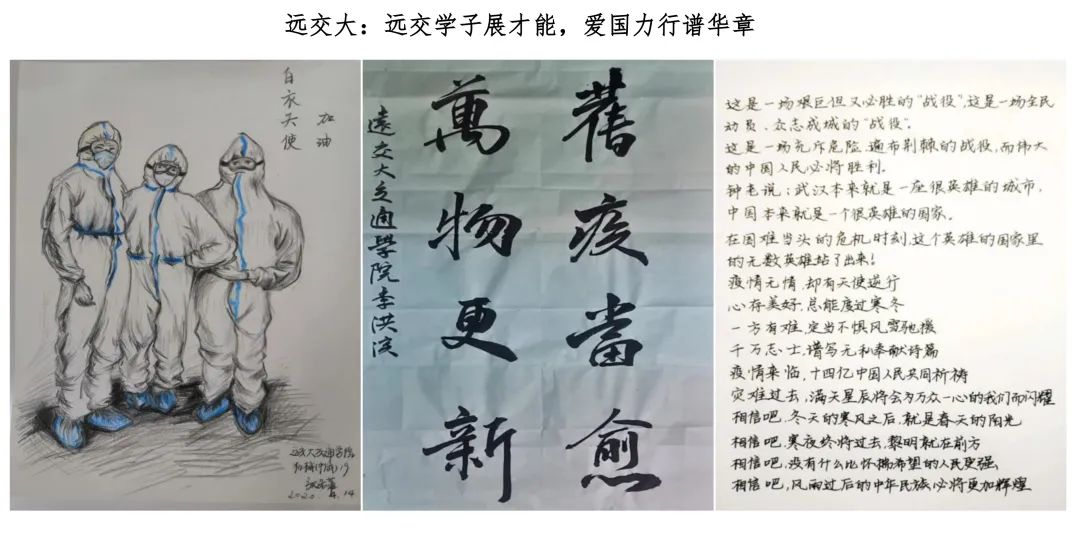 远交大：远交学子展才能，爱国力行谱华章
白衣天使
加油
2020. 4.14
舊疫當愈
萬物更新
遠交大交通學院李洪滨
这是一场艰巨但又必胜的“战役”，这是一场全民
动员、众志成城的“战役”。
这是一场充斥危险、遍布荆棘的战役，而伟大
的中国人民必将胜利。
钟老说：武汉本来就是一座很英雄的城市，
中国本来就是一个很英雄的国家。
在困难当头的危机时刻，这个英雄的国家里
的无数英雄站了出来！
疫情无情，却有天使逆行
心存美好，总能度过寒冬
一方有难，定当不惧风雪驰援
千万志士，谱写无私奉献诗篇
疫情来临，十四亿中国人民共同祈祷
灾难过去，满天星辰将会为万众一心的我们而闪耀
相信吧，冬天的寒风之后，就是春天的阳光
相信吧，寒夜终将过去，黎明就在前方
相信吧，没有什么比怀揣希望的人民更强
相信吧，风雨过后的中华民族必将更加辉煌